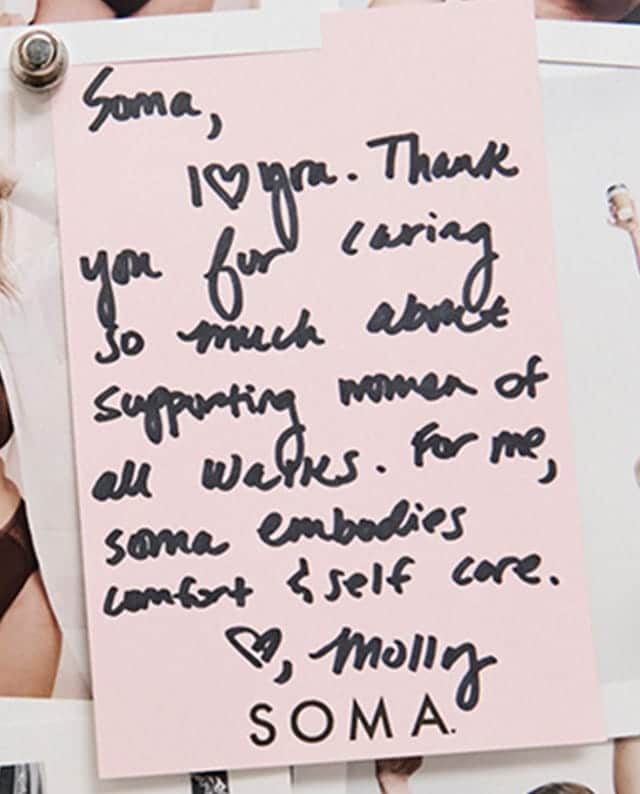 Soma,
I ♡ you. Thank
you for caring
so much about
supporting women of
all walks. For me,
soma embodies
comfort & self care.
♡, Molly
SOMA.